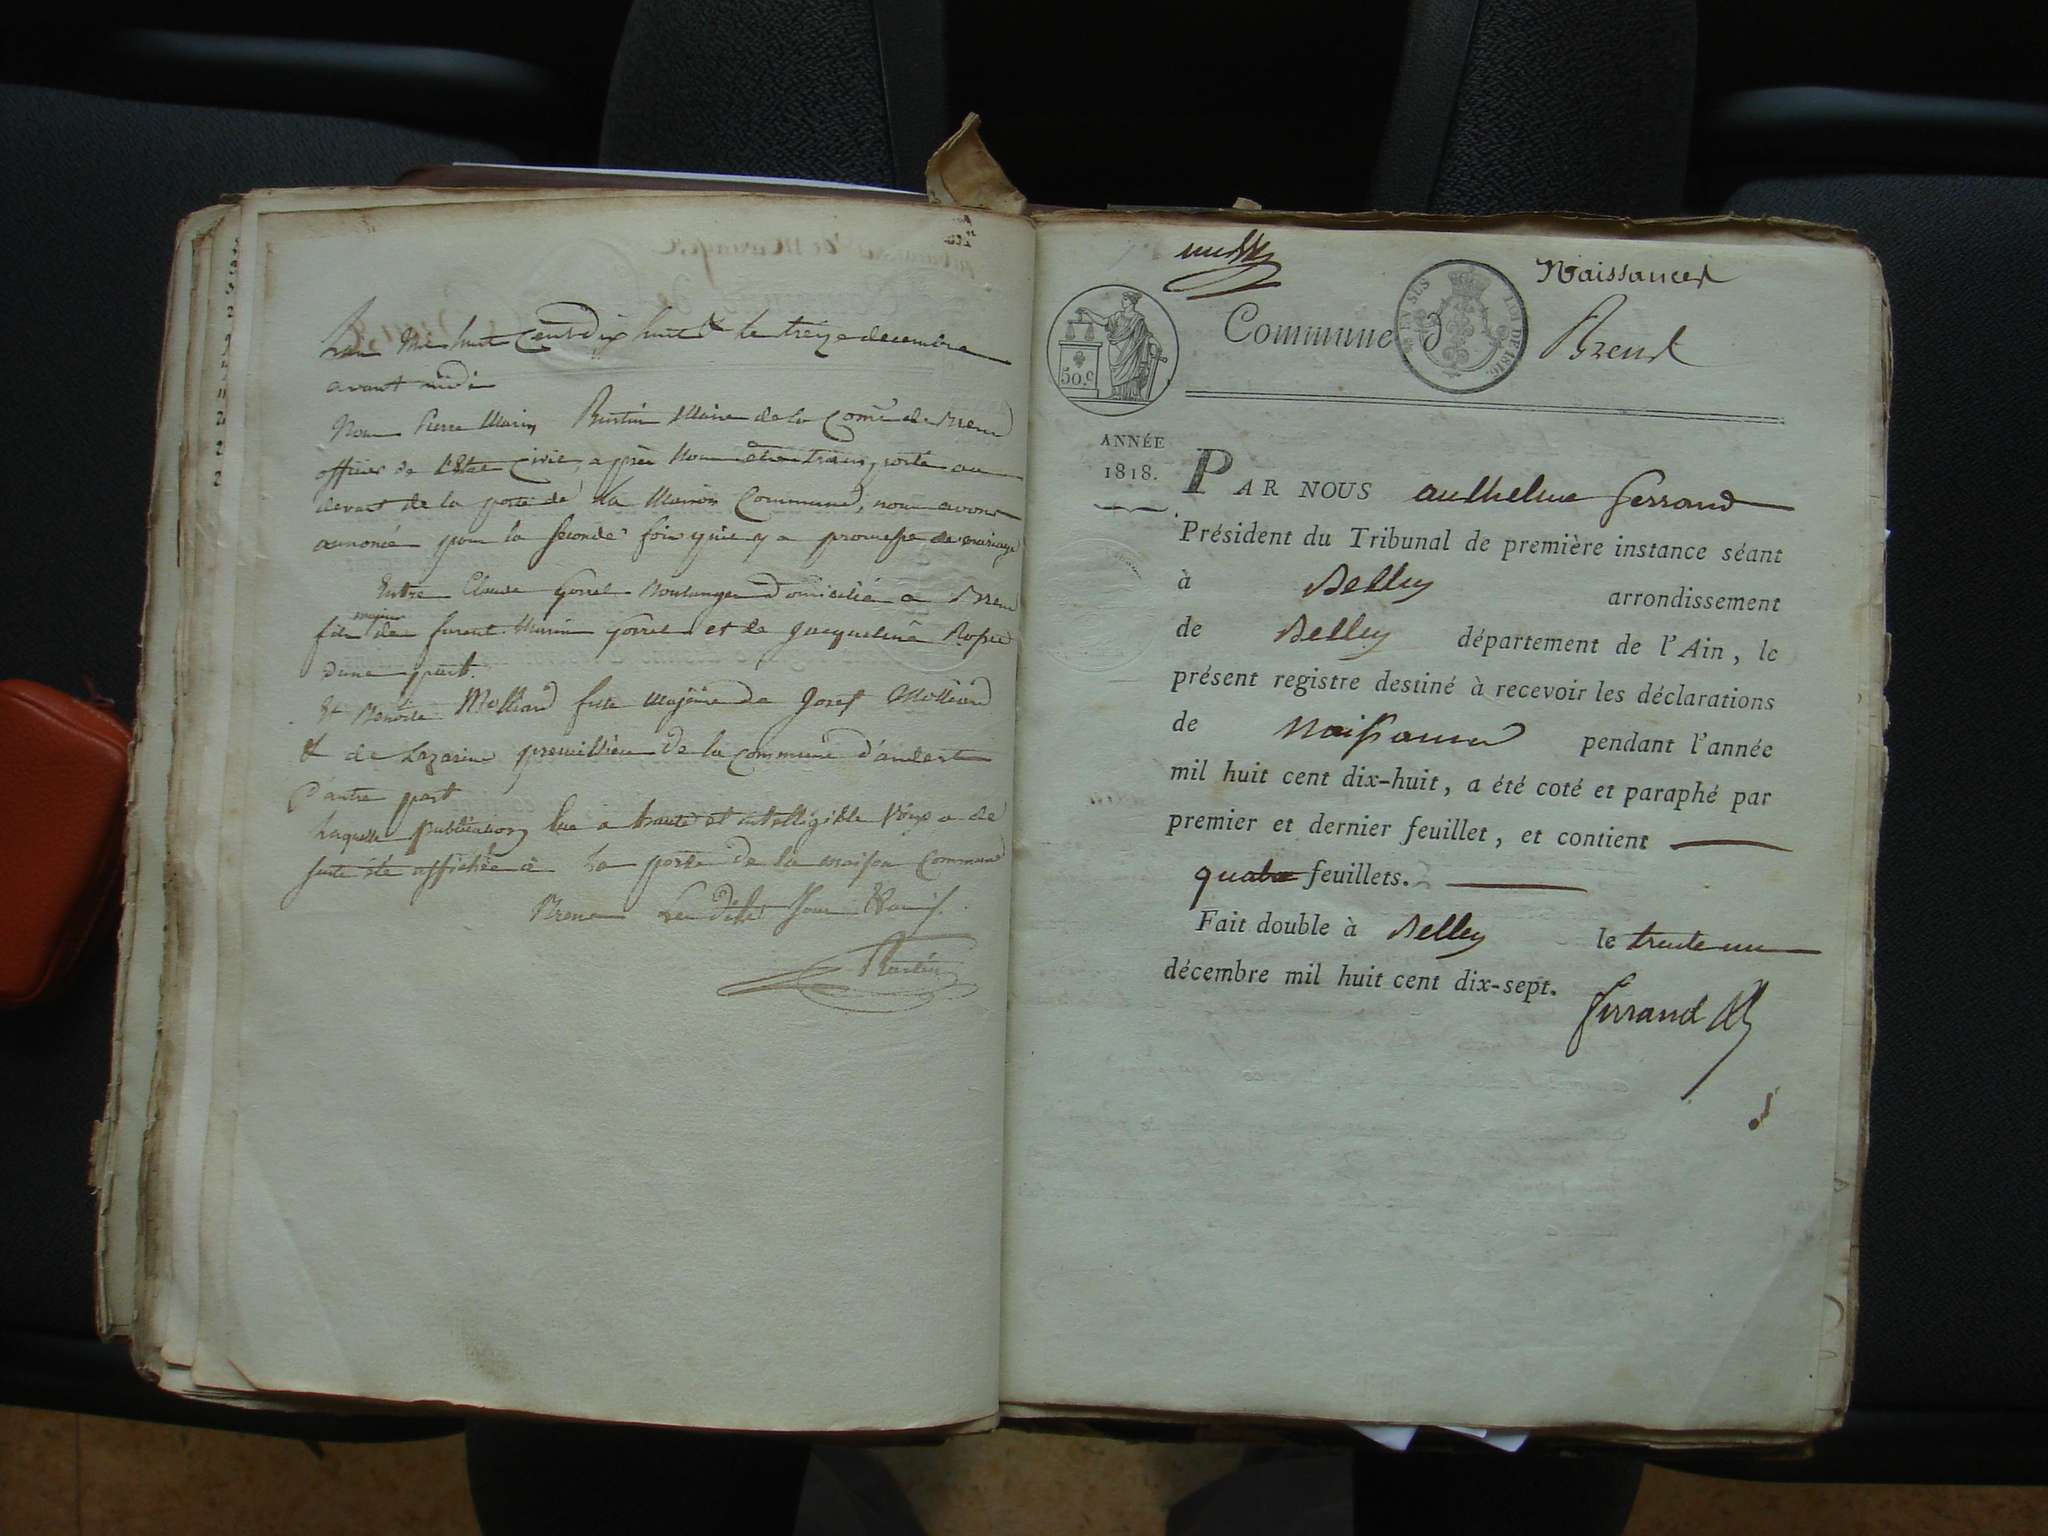 Lan Mil huit Cent dix huit & le treize decembre
avant midi
Nous Pierre Marin Rustin Maire de la Com͞e de Brens
officier de l'Etat Civil, après Nous être transporté au
devant de la porte de la Maison Commune, nous avons
annoncé pour la Seconde fois qu'il y a promesse de mariage
Entre Claude Gorrel Boulanger Domicilié a Brens
majeur
fils de furent Marin Gorrel et de Jacqueline
d'une part.
& Benoite Molliard fille Majeure de Josef Molliard
& de Lazarine de la commune d'andert
D'autre part
Laquelle publication lue a haute et intelligible Voix a de
suite été affichée à la porte de la maison Commune
Brens Les dits Jour &
Rustin
Naissances
Commune d
Brens
EN SUS
LOI DE 1816.
50.c
ANNÉE
1818.
PAR NOUS anthelme ferrand
Président du Tribunal de première instance séant
à Belley arrondissement
de Belley département de l'Ain, le
présent registre destiné à recevoir les déclarations
de Naissances pendant l'année
mil huit cent dix-huit, a été coté et paraphé par
premier et dernier feuillet, et contient
quatre feuillets.
Fait double à Belley le trente un
décembre mil huit cent dix-sept.
ferrand